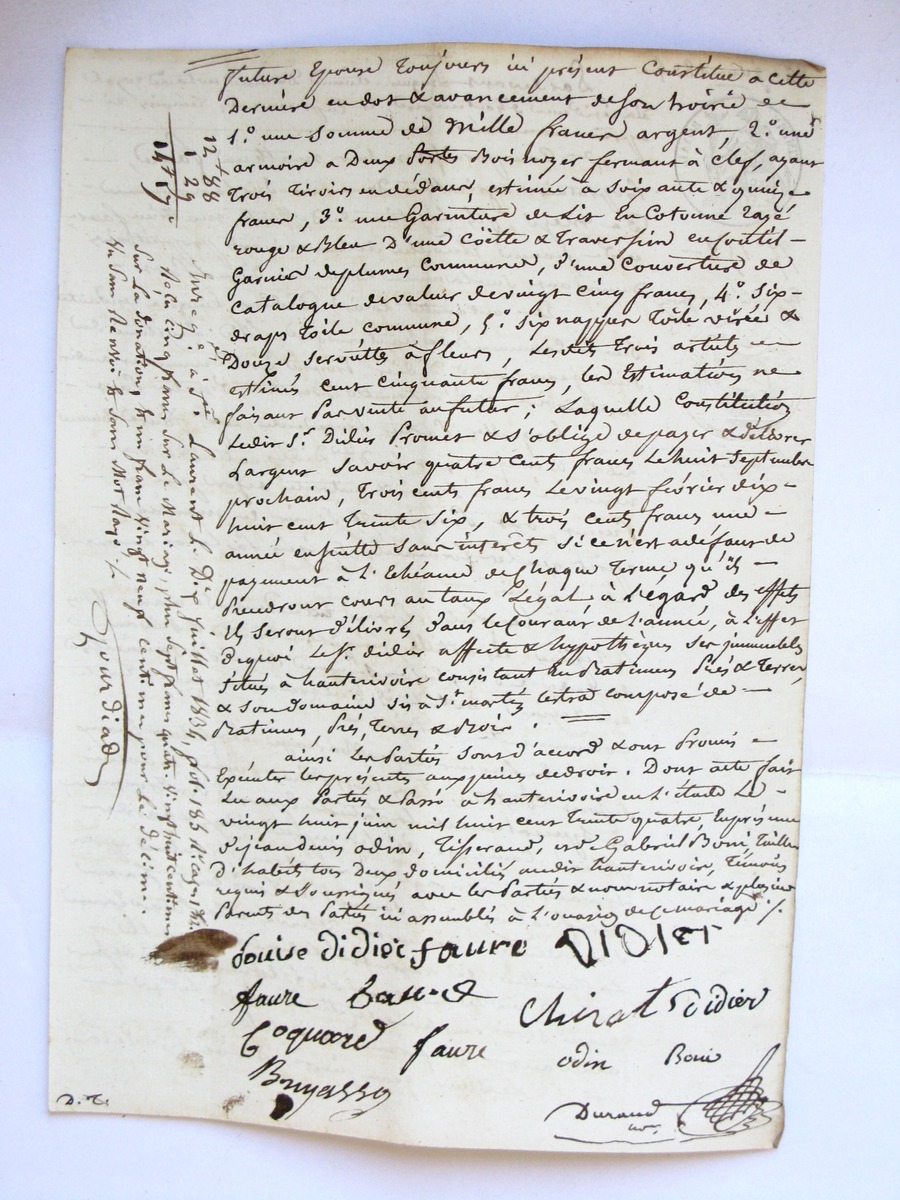 future Epouse toujours ici présent Constitue a cette
Derniere en dot & avancement de son hoirie de
1.º une Somme de Mille francs argent, 2.º une
armoire a Deux Portes Bois noyer fermant à clef, ayant
Trois Tiroirs en dédans, estimée à soixante & quinze
francs, 3.º une Garniture de Lit En Cotonne rayé
rouge & Bleu D'une Coëtte & Traversin en Coutil
Garnier de plumes Commune, d'une Couverture de
Catalogue de valeur de vingt cinq francs, 4.º Six
draps Toile commune, 5.º Six nappes Toile virée &
Douze serviettes à fleurs, Lesdits Trois articles
estimés cent cinquante francs, les Estimations ne
faisant Par vente au futur; Laquelle Constitution
Ledit S.r Didier Promet & S'oblige de payer & délivrer
L'argent Savoir quatre Cents francs Le huit Septembre
prochain, Trois cents francs Le vingt février dix
huit cent Trente Six, & trois cents francs une
année ensuitte Sans interêts si ce n'est a défaut de
payement à L'Echéance de Chaque Terme qu'ils
Prendront cours au taux Légal à L'égard des effets
Ils seront délivrés dans le Courant de l'année, à L'effet
Dequoi Le S.r didier affecte & hypothèque ses immeubles
Situés à hauterivoire consistant En Batimens Prés & Terres
& Son domaine sis à S.t martin Lestra composé de
Batimens, Prés, Terres & Bois.
ainsi Les Parties sont d'accord & ont Promis
Exécuter les présentes aux peines de droit. Dont acte fait
Lu aux Parties & Passé à hauterivoire en L'étude Le
vingt huit juin mil huit cent Trente quatre, En présence
de jean denis odin, Tisserand, & de Gabriel Boni, Tailleur
D'habits tous Deux domiciliés audit hauterivoire, Témoins
requis & Soussignés avec les Parties & nous notaire & plusieurs
Parents des Parties ici assemblés à L'occasion de ce mariage ./.
Louise didier faure DIDIER
faure
Chirat didier
Coquard faure
odin Boni
Bruyasso
Durand
not.
D. T.
12 " 88
1 " 29
14 " 17
Enreg.é à S.t Laurent le Dix juillet 1834, fol. 185
Reçu Cinq francs sur Le Mariage, plus sept francs quatre vingt huit centimes
Sur La donation, & un franc vingt neuf centimes pour Le décime.
Gourdiad